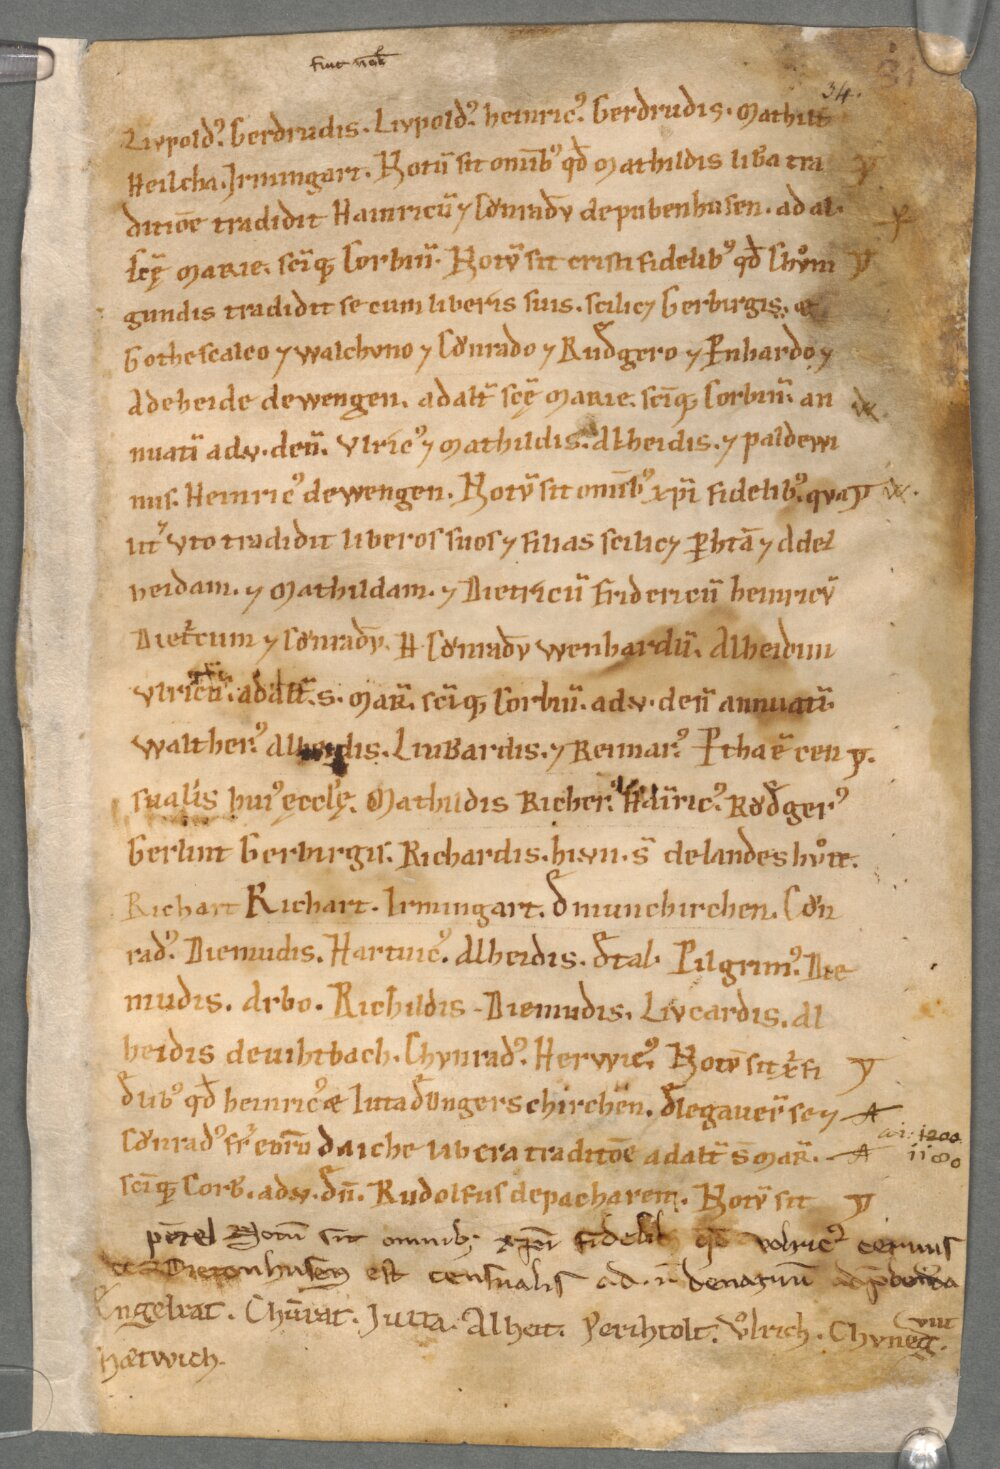 34.
Livpold⁹. Gerdrudis. Livpold⁹. heinric⁹. Gerdrudis. Mathilt
Heilcha. Irmingart. Notū sit omīb⁹ qđ Mathildis lib̄a tra
ditiōe tradidit Hainricū ⁊ Cͦnradv̄ depubenhusen. ad al.
scę MARIE. scīq; Corbiñ. Notv̄ sit cristi fidelib⁹ qđ Chvͦni
gundis tradidit se cum liberis suis. scilicꝫ Gerbirgis. &
Gothescalco ⁊ walchvno ⁊ Cͦnrado ⁊ Rudgero ⁊ Pnhardo ⁊
Adeheide dewengen. ad alt̄ scę MARIE. scīq; Corbiñ. an
nuatī adv. deñ. vlric⁹ ⁊ Mathildis. Alheidis. ⁊ paldewi
nus. Heinric⁹ dewengen. Notv̄ sit omīb⁹ xp̄i fidelib⁹. qva
lit̄ vto tradidit liberos suos ⁊ filias scilicꝫ P̄htā ⁊ Adel
heidam. ⁊ Mathildam. ⁊ Dietricū Fridericū heinricv̄
Diet̄cum ⁊ Cͦnradv̄. H Cͦnradv̄ wenhardū. Alheidim
vlricū. ad alt̄. s. MAR̄. scīq; Corbiñ. adv. deñ annuatī.
walther⁹. Alheidis. Liukardis. ⁊ Reimar⁹. P̄tha ē cen
sualis hui⁹ ęccl̄ę. Mathildis Richer⁹. Hainric⁹. Rͦdger⁹
Gerlint Gerbirgis. Richardis. hi. vii. s̄ delandeshvͦte.
Richart Richart. Irmingart. đ munchirchen. Cͦn
rad⁹. Diemudis. Hartuic⁹. Alheidis. đtal. Pilgrim⁹. Die
mudis. Arbo. Richildis. Diemudis. Livcardis. Al
heidis deuihtbach. Chvnrad⁹. Herwic⁹. Notv̄ sit x̄p̄i fi
đlib⁹ qđ heinric⁹ & Iuta đ Vngerschirchen. đlegauer̄ se ⁊
Cͦnrad⁹ fr̄ eorū daiche libera traditōe ad alt̄ s̄ MAR̄.
ai: 1200.
scīq; Corb. adv. đn̄. Rudolfus depacharem. Notv̄ sit
Notū sit omnib; xp̄i fidelib; qđ volric⁹ ceruus
de Dietenhusen est censualis ad. v denariū
Engelrat. Chūrat. Jutta. Alheit. Perihtolt. vͦlrich. Chvneg.
Hætwich.